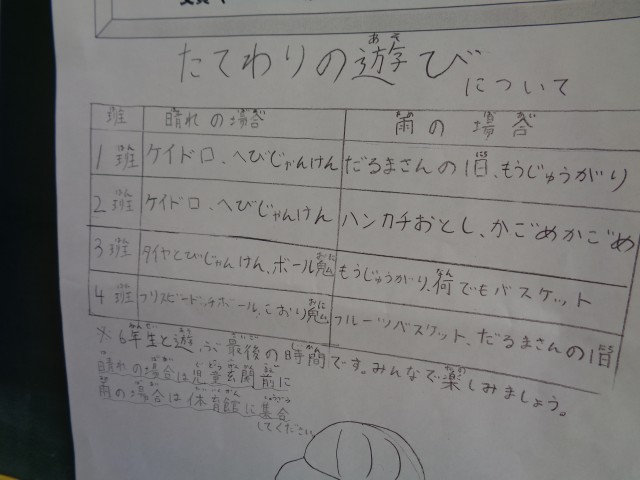 たてわりの遊び
について
班 晴れの場合 雨の場合
1班 ケイドロ、へびじゃんけん だるまさんの1日、もうじゅうがり
2班 ケイドロ、へびじゃんけん ハンカチおとし、かごめかごめ
3班 タイヤとびじゃんけん、ボール鬼 もうじゅうがり、何でもバスケット
4班 フリスビードッチボール、こおり鬼 フルーツバスケット、だるまさんの1日
※6年生と遊ぶ最後の時間です。みんなで楽しみましょう。
晴れの場合は児童玄関前に
雨の場合は体育館に集合
してください